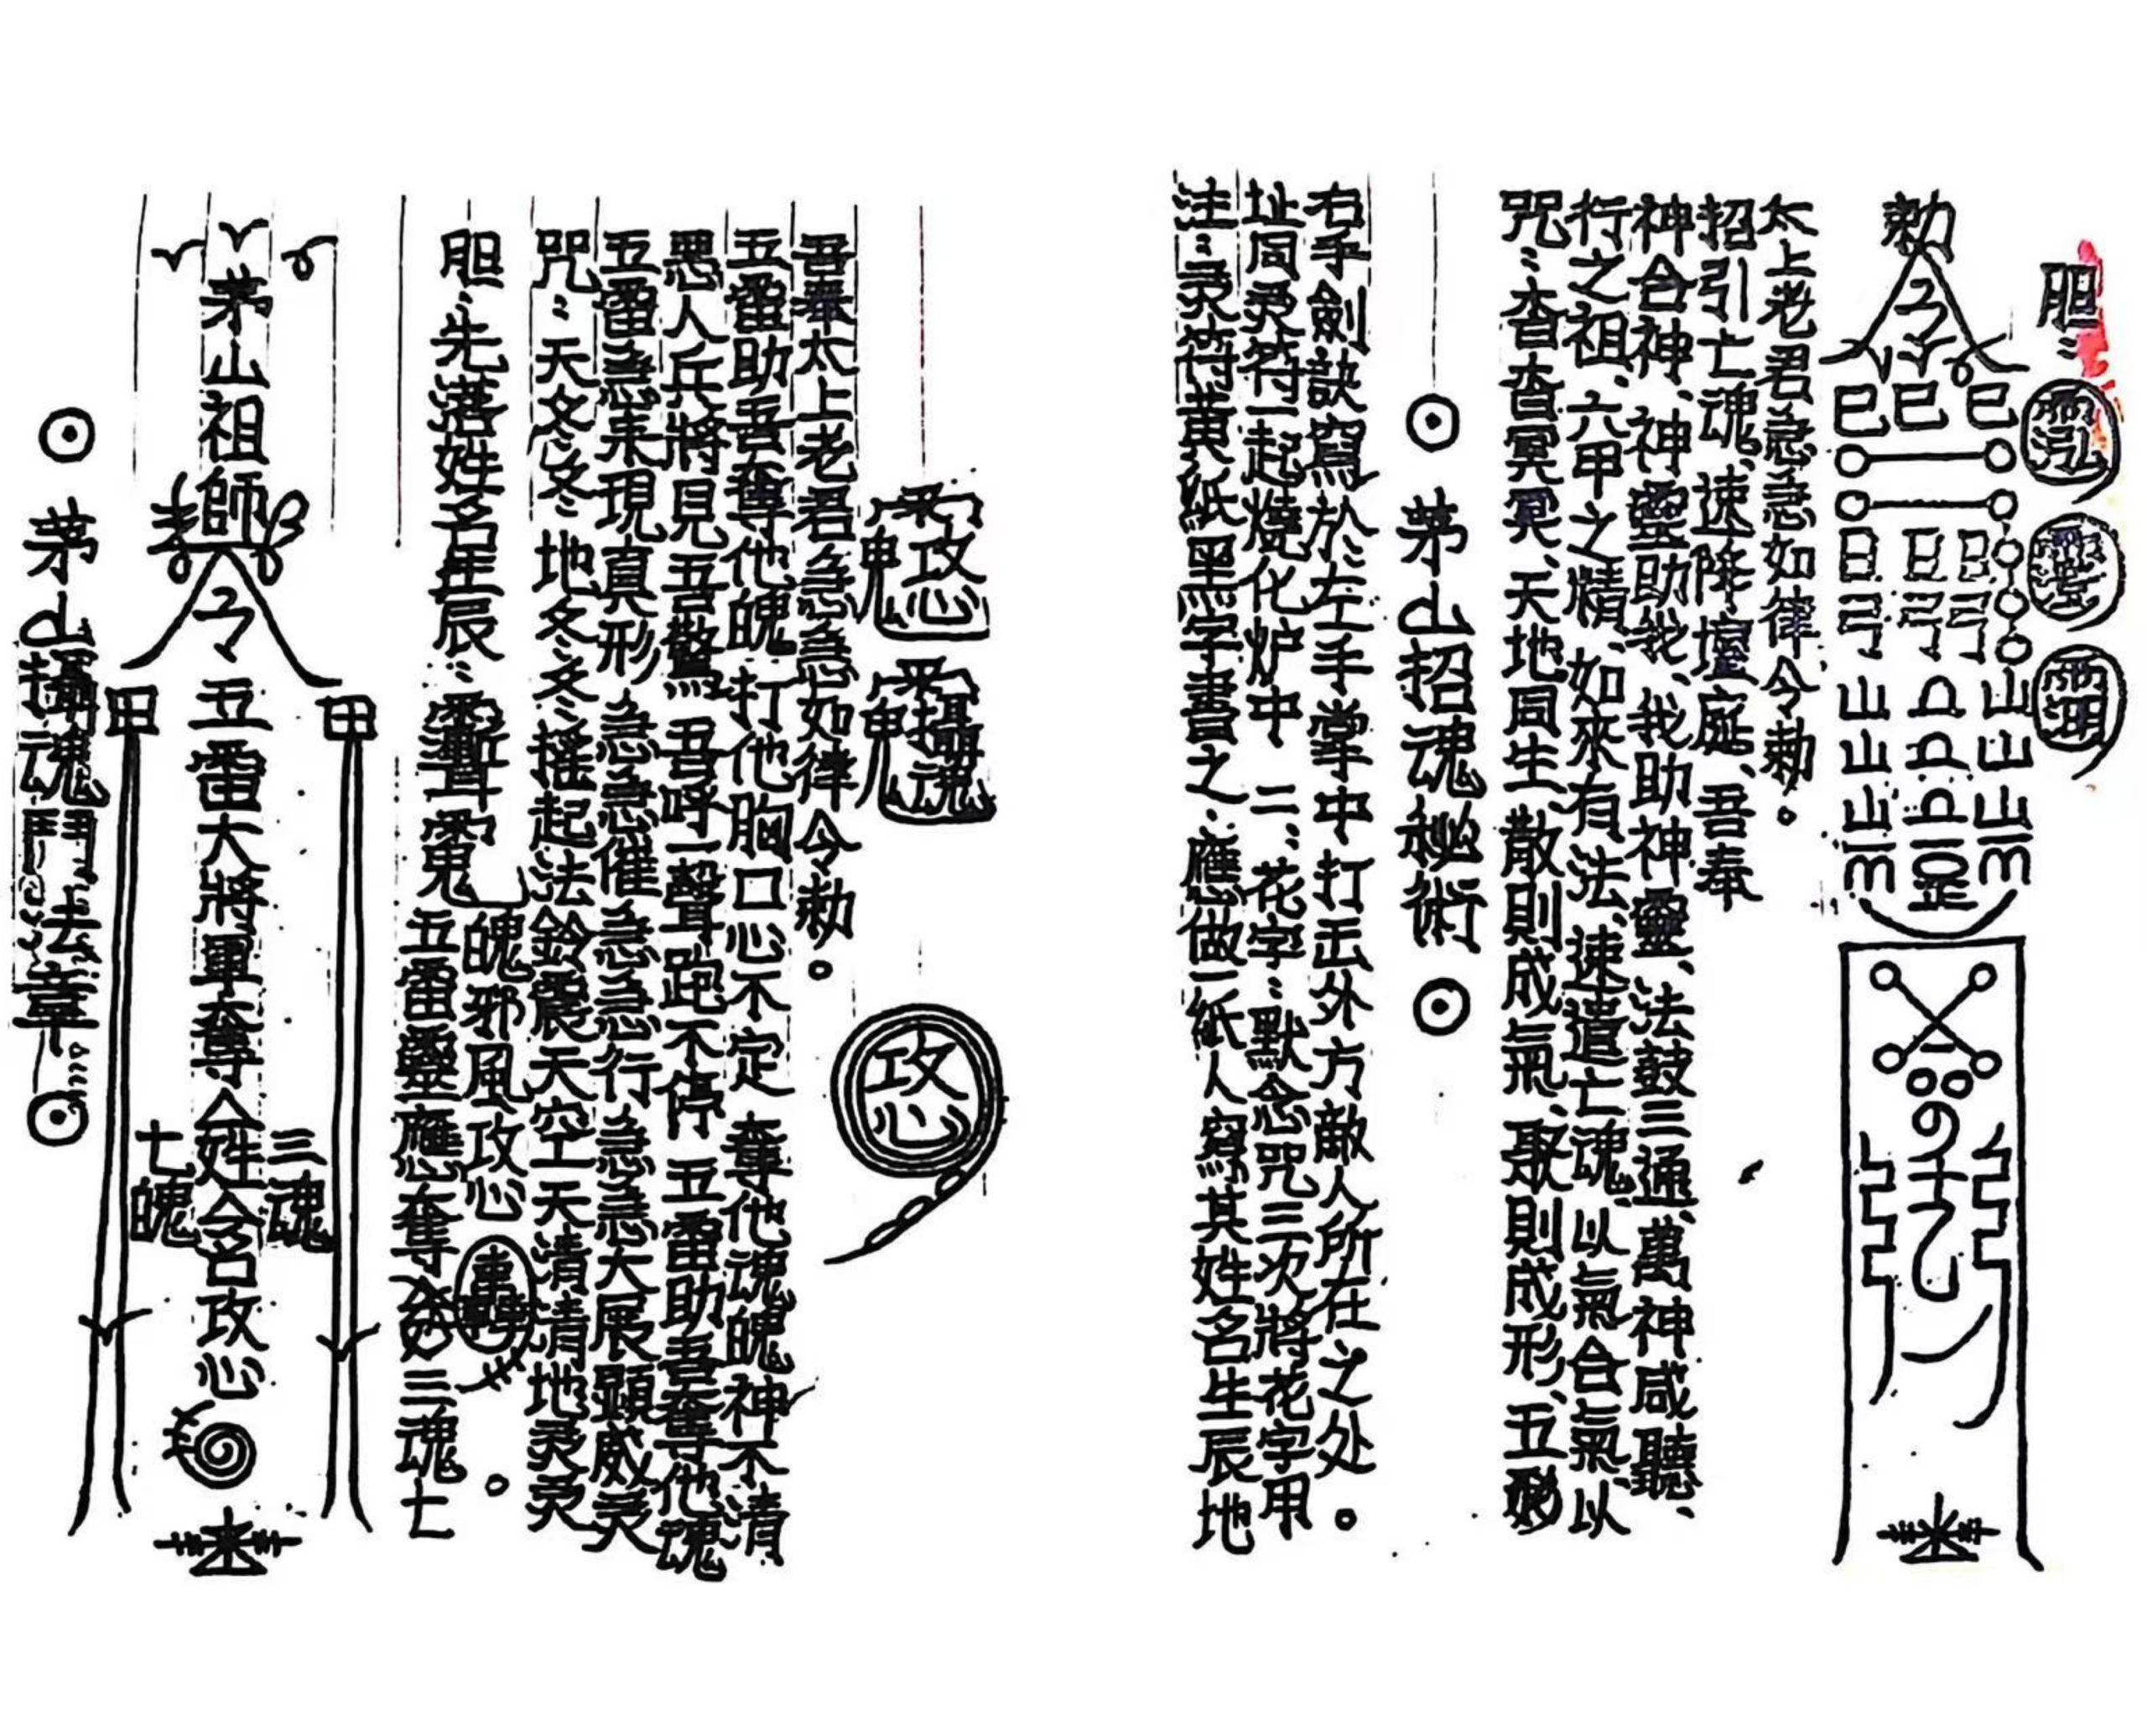 ⊙ 茅山攝魂鬥法章 ⊙
茅山祖師
令
五雷大將軍奪
姓名攻心
三魂
七魄
胆：先落姓名年辰：
五雷靈應奪三魂七
魄邪風攻心。
咒：天冬冬地冬冬搖起法鈴震天空天清清地灵灵
五雷急來現真形急急催急急行急急大展顯威灵
惡人兵將見吾驚吾呼一聲跑不停五雷助吾奪他魂
五雷助吾奪他魄打他胸口心不定奪他魂魄神不清
吾奉太上老君急急如律令勅。
攻心
攝魂
攻心
注：灵符黄紙黑字書之、應做一紙人寫其姓名生辰地
址同灵符一起燒化炉中二、花字：默念咒三次將花字用
右手劍訣寫於左手掌中打出外方敵人所在之处。
⊙ 茅山招魂秘術 ⊙
咒：杳杳冥冥、天地同生、散則成氣、聚則成形、五
行之祖、六甲之精、如來有法、速遣亡魂、以氣合氣、以
神合神、神靈助我、我助神靈、法鼓三通、萬神咸聽、
招引亡魂、速降壇庭、吾奉
太上老君急急如律令勅。
勅令
胆：